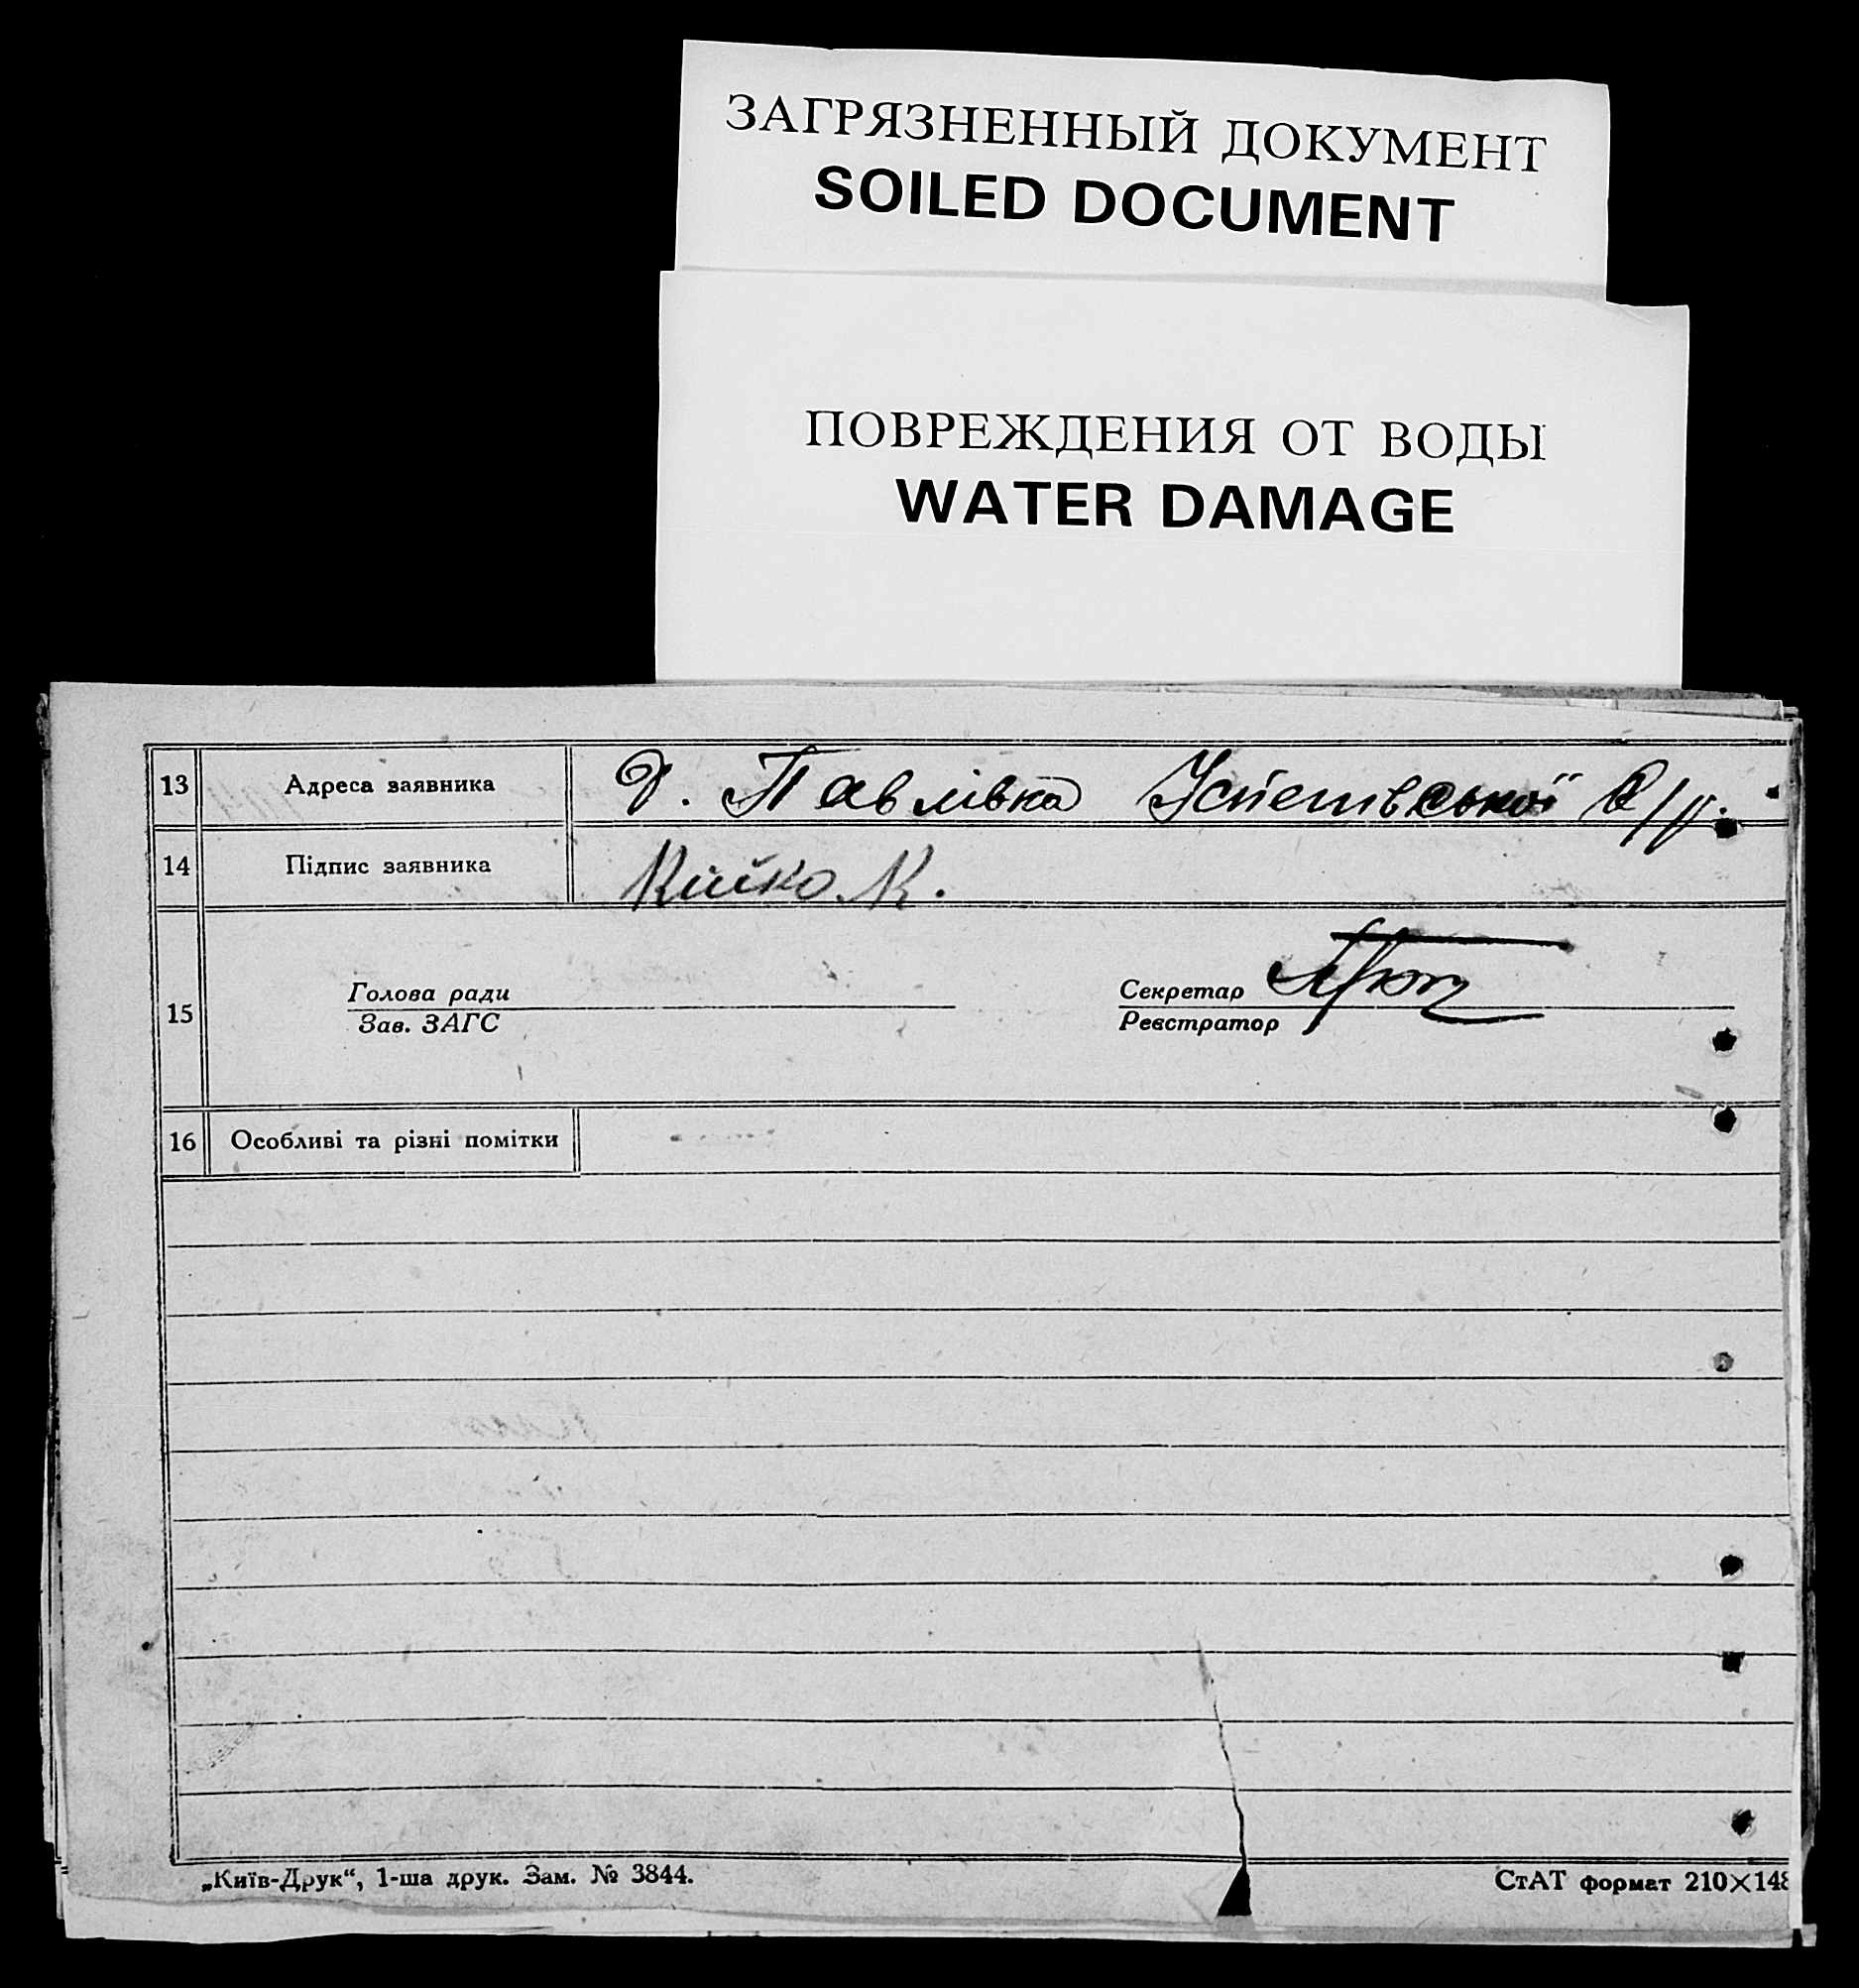 ЗАГРЯЗНЕННЫЙ ДОКУМЕНТ
SOILED DOCUMENT
ПОВРЕЖДЕНИЯ ОТ ВОДЫ
WATER DAMAGE
13 Адреса заявника Д. Павлівка Успетівської с/р.
14 Підпис заявника Кийко К.
15
Голова ради
Зав. ЗАГС
Секретар
Реєстратор
16 Особливі та різні помітки
„Київ-Друк“, 1-ша друк. Зам. № 3844.
СтАТ формат 210×148